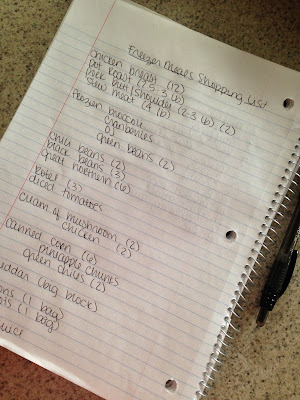 Freezer Meals Shopping List
chicken breast (12)
pot roast (2.5-3 lb)
pork butt/shoulder (2-3 lb) (2)
stew meat (4 lb)
frozen broccoli
cranberries
OJ
green beans (2)
chili beans (2)
black beans (3)
great northern (6)
rotel (3)
diced tomatoes
cream of mushroom (2)
chicken (2)
canned corn (6)
pineapple chunks
green chilis (2)
(big block)
(1 bag)
(1 bag)